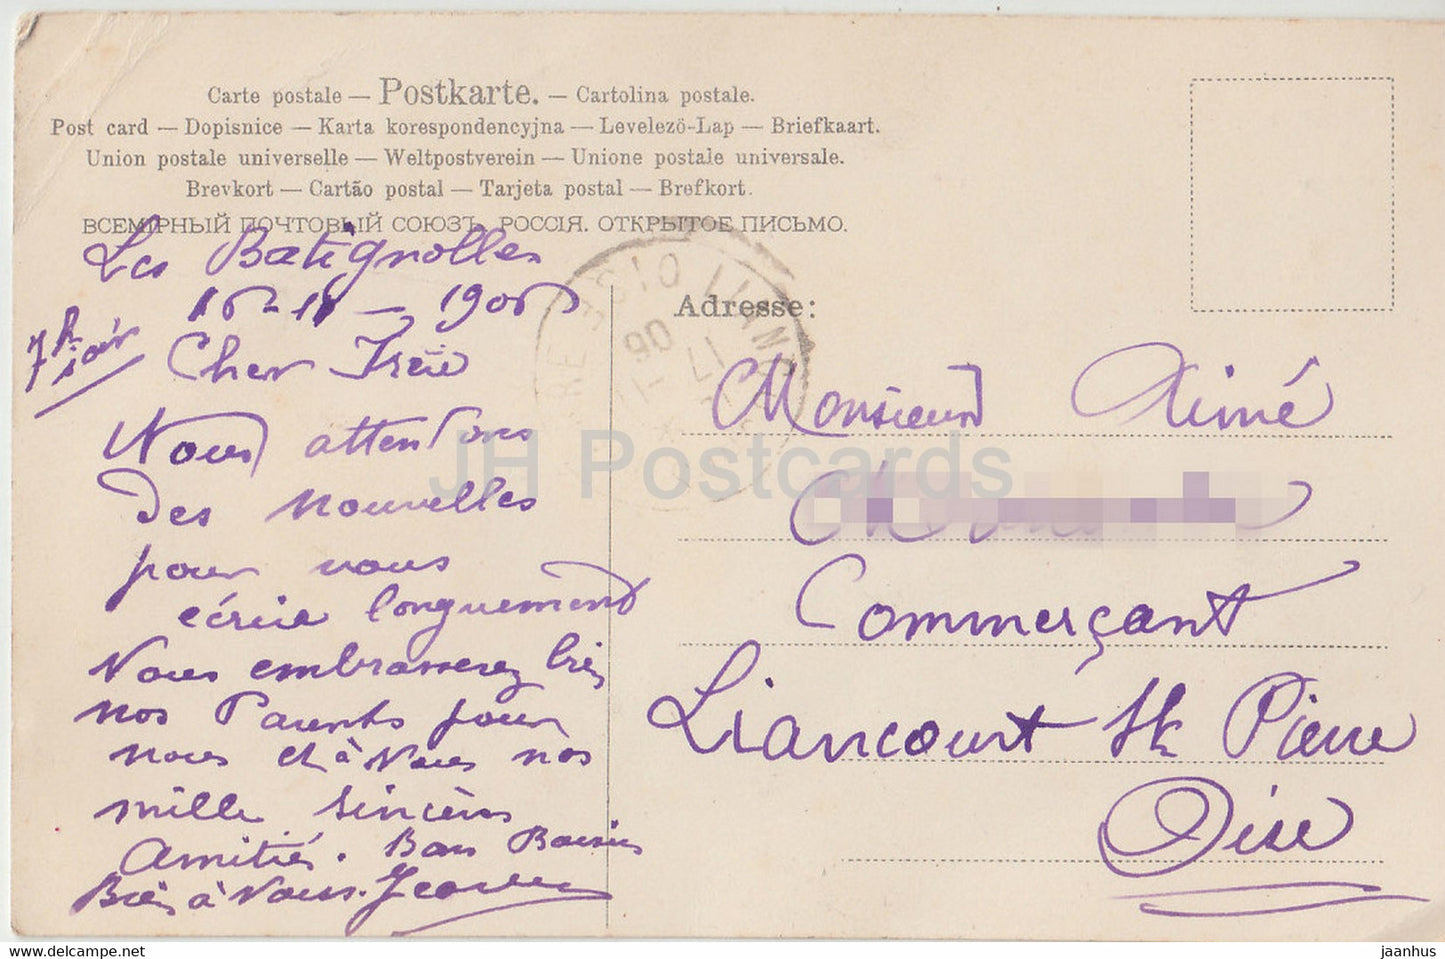 Carte postale — Postkarte. — Cartolina postale.
Post card — Dopisnice — Karta korespondencyjna — Levelező-Lap — Briefkaart.
Union postale universelle — Weltpostverein — Unione postale universale.
Brevkort — Cartão postal — Tarjeta postal — Brefkort.
ВСЕМІРНЫЙ ПОЧТОВЫЙ СОЮЗЪ. РОССІЯ. ОТКРЫТОЕ ПИСЬМО.
Les Batignolles
16-11-1906
7h soir
Cher
Nous attendons
des nouvelles
pour vous
écrire longuement
Vous embrasserez bien
nos Parents pour
nous et à Vous nos
mille sincères
Amitiés. Bons Baisers
Bien à Vous.
Adresse:
Monsieur Aimé
Commerçant
Liancourt St Pierre
Oise
OISE
17
06
JH Postcards
www.delcampe.net
jaanhus